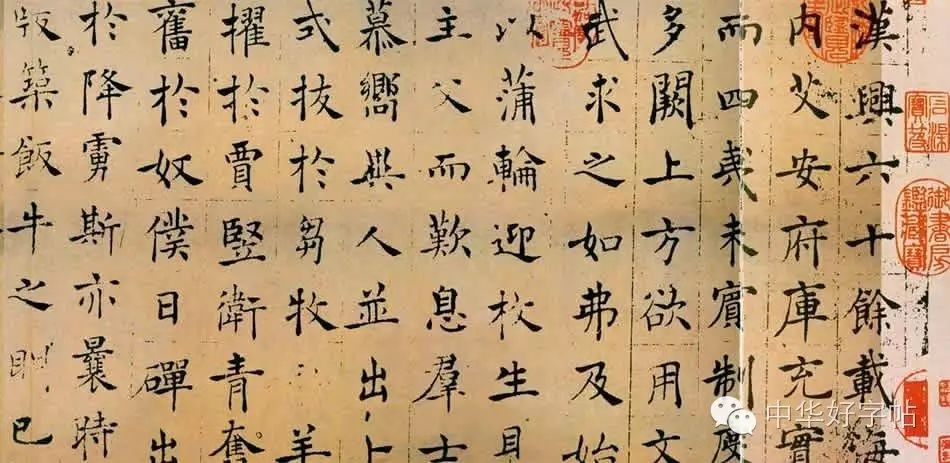 漢興六十餘載海
内艾安府庫充實
而四夷未賓制度
多闕上方欲用文
武求之如弗及始
以蒲輪迎枚生見
主父而歎息羣士
慕嚮異人並出卜
式拔於芻牧羊
擢於賈豎衛青奮
奮於奴僕日磾出
於降虜斯亦曩時
版築飯牛之朋已
中华好字帖